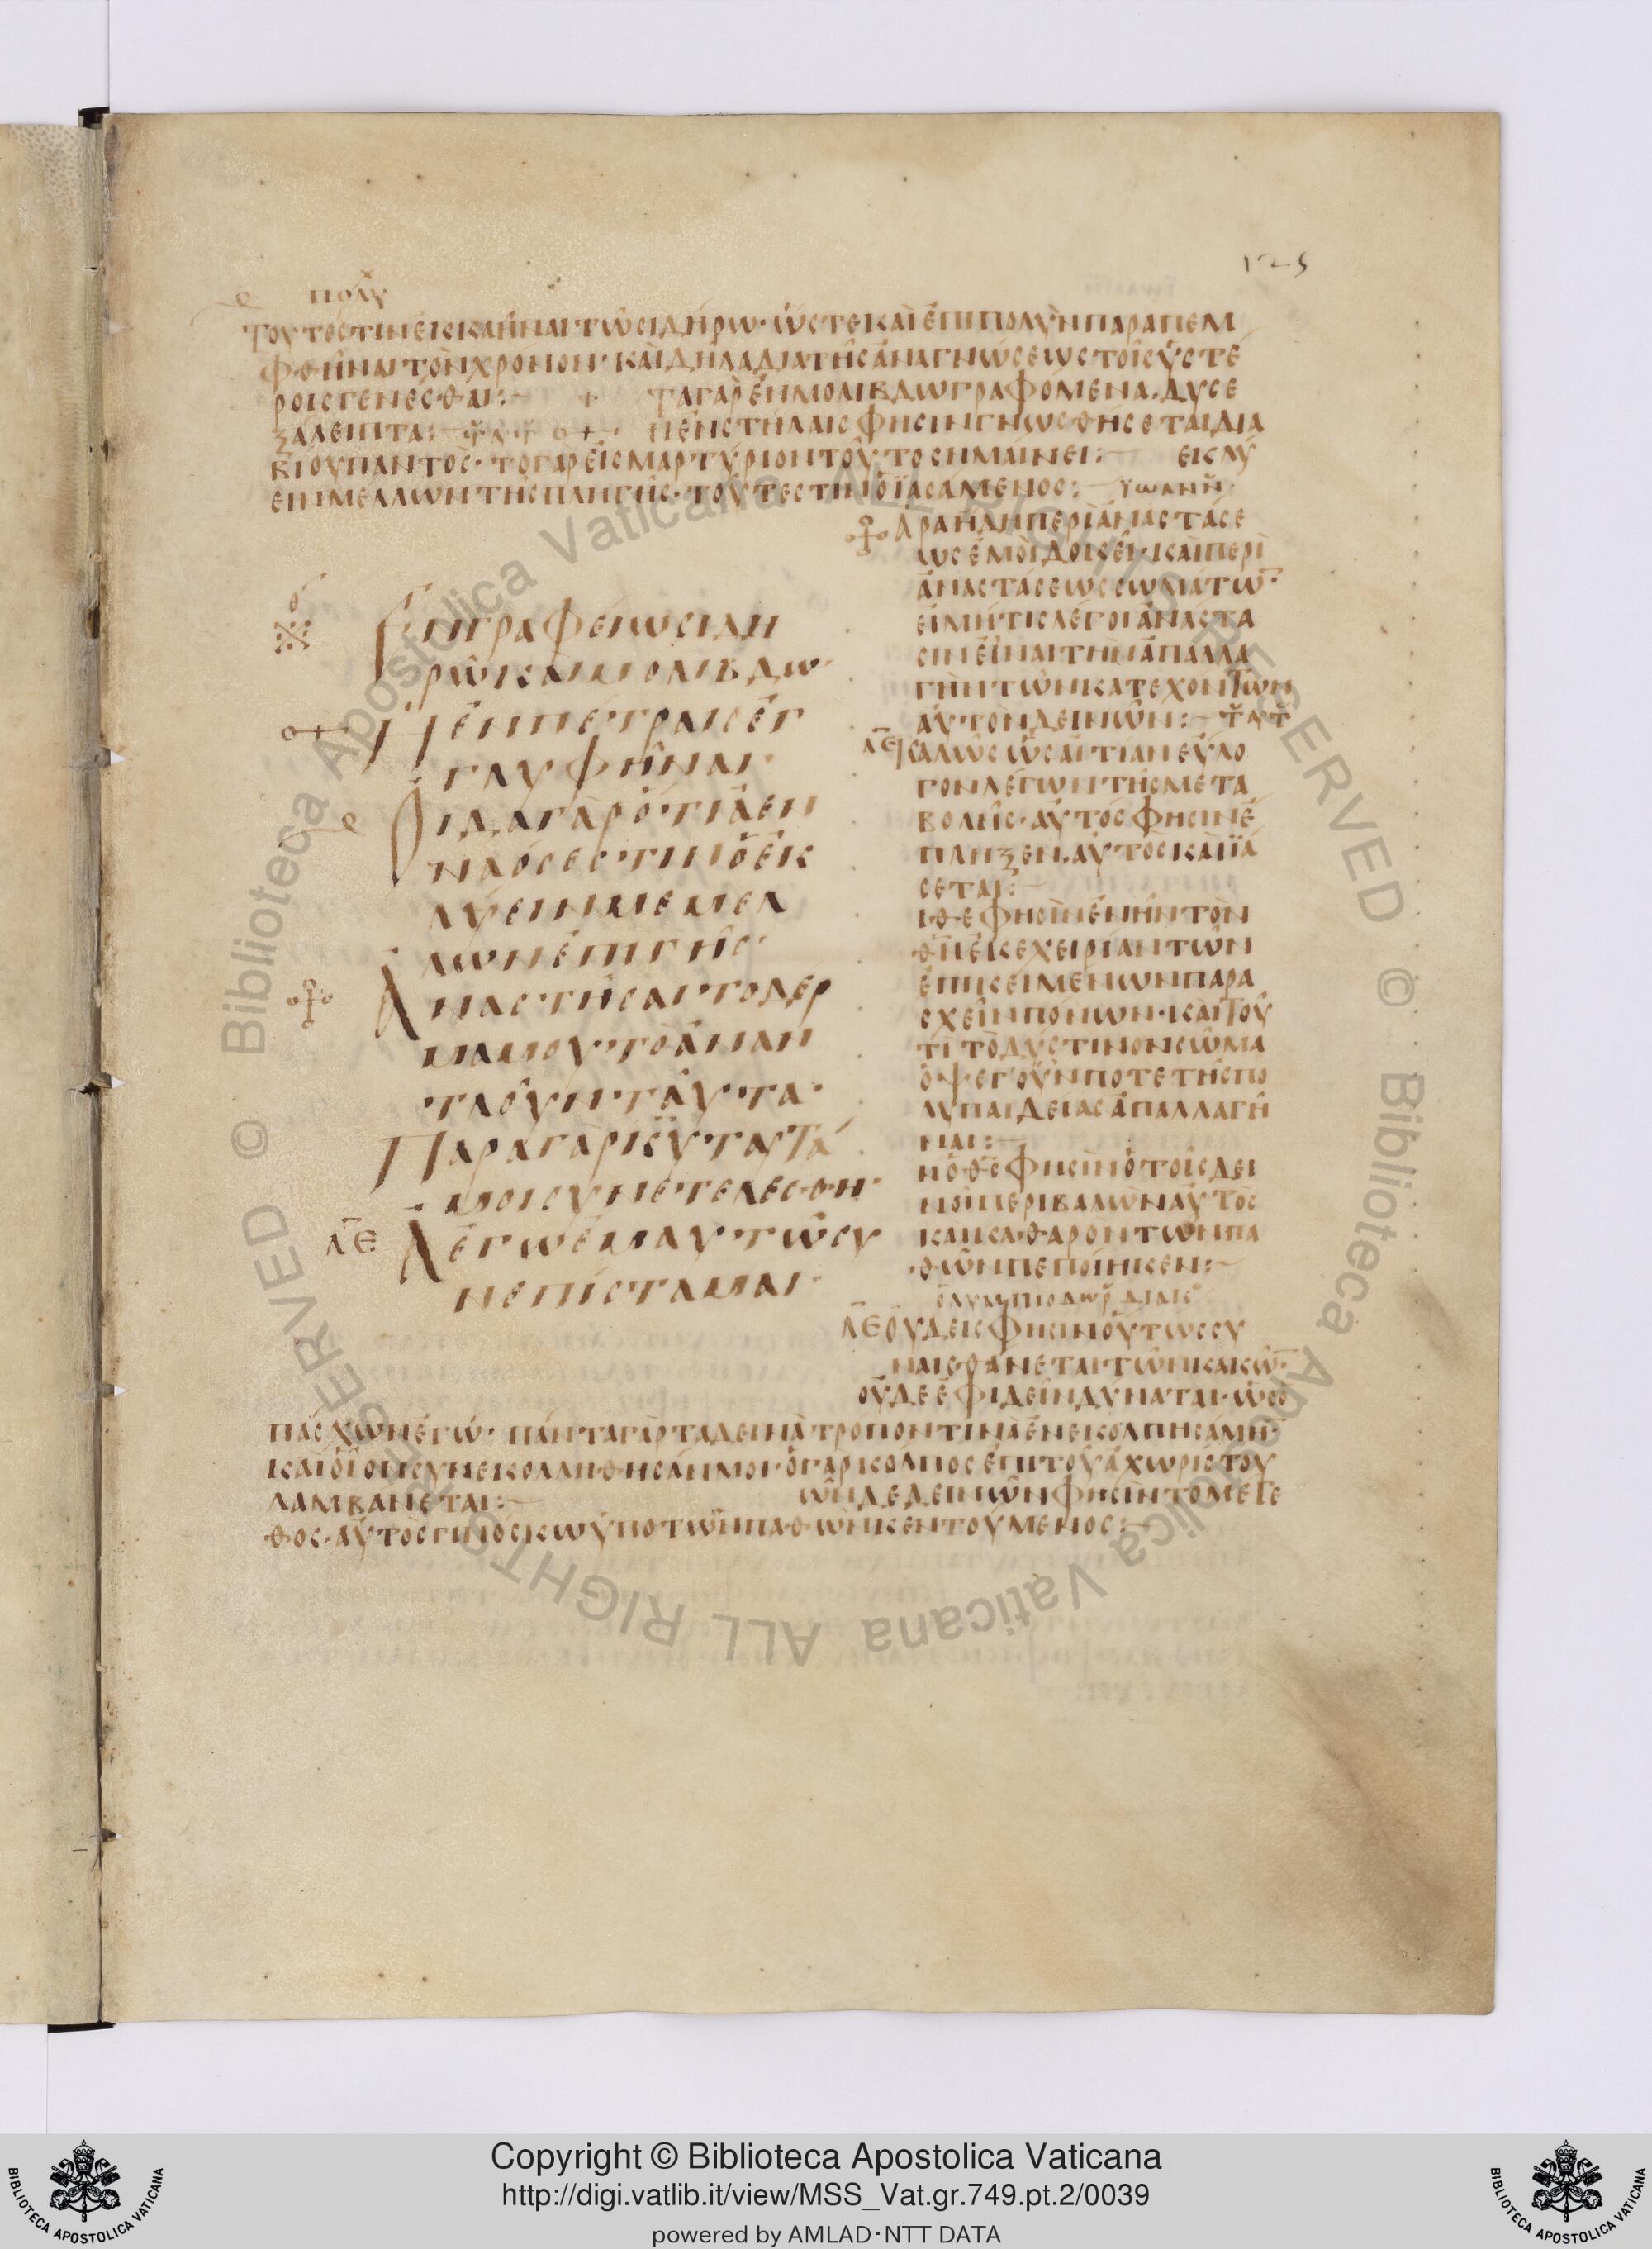 125
ΠΟΛΥ
ΤΟΥΤΕΣΤΙΝ ΕΙΣΚΑΗΝΑΙ ΤΩ ΣΙΔΗΡΩ· ΩΣΤΕ ΚΑΙ ΕΠΙ ΠΟΛΥΝ ΠΑΡΑΠΕΜ
ΦΘΗΝΑΙ ΤΟΝ ΧΡΟΝΟΝ· ΚΑΙ ΔΗΛΑ ΔΙΑ ΤΗΣ ΑΝΑΓΝΩΣΕΩΣ ΤΟΙΣ ΥΣΤΕ
ΡΟΙΣ ΓΕΝΕΣΘΑΙ:— ΤΑ ΓΑΡ ΕΝ ΜΟΛΙΒΔΩ ΓΡΑΦΟΜΕΝΑ. ΔΥΣΕ
ΞΑΛΕΙΠΤΑ:— Η ΕΝ ΣΤΗΛΑΙΣ ΦΗΣΙΝ ΓΝΩΣΘΗΣΕΤΑΙ ΔΙΑ
ΒΙΟΥ ΠΑΝΤΟΣ· ΤΟ ΓΑΡ ΕΙΣ ΜΑΡΤΥΡΙΟΝ ΤΟΥΤΟ ΣΗΜΑΙΝΕΙ:— ΕΚΛΥ
ΕΙΝ ΜΕΛΛΩΝ ΤΗΣ ΠΛΗΓΗΣ· ΤΟΥΤΕΣΤΙΝ Ο ΙΑΣΑΜΕΝΟΣ:— ΙΩΑΝΝ
ΑΡΑ ΗΔΗ ΠΕΡΙ ΑΝΑΣΤΑΣΕ
ΩΣ ΕΜΟΙ ΔΟΚΕΙ· ΚΑΙ ΠΕΡΙ
ΑΝΑΣΤΑΣΕΩΣ ΣΩΜΑΤΩ̅·
ΕΙ ΜΗ ΤΙΣ ΛΕΓΟΙ ΑΝΑΣΤΑ
ΣΙΝ ΕΙΝΑΙ ΤΗΝ ΑΠΑΛΛΑ
ΓΗΝ ΤΩΝ ΚΑΤΕΧΟΝΤΩΝ
ΑΥΤΟΝ ΔΕΙΝΩΝ:—
Λ̅Ε ΚΑΛΩΣ ΩΣ ΑΙΤΙΑΝ ΕΥΛΟ
ΓΟΝ ΛΕΓΩΝ ΤΗΣ ΜΕΤΑ
ΒΟΛΗΣ· ΑΥΤΟΣ ΦΗΣΙΝ Ε
ΠΛΗΞΕΝ. ΑΥΤΟΣ ΚΑΙ ΙΑ
ΣΕΤΑΙ:—
ΙΘΕ ΦΗΣΙΝ ΕΝΗΝ ΤΟΝ
Θ̅Ν ΕΚΕΧΕΙΡΙΑΝ ΤΩΝ
ΕΠΙΚΕΙΜΕΝΩΝ ΠΑΡΑ
ΣΧΕΙΝ ΠΟΝΩΝ· ΚΑΙ ΤΟΥ
ΤΙ ΤΟ ΔΥΣΤΙΝΟΝ ΣΩΜΑ
ΟΨΕ ΓΟΥΝ ΠΟΤΕ ΤΗΣ ΠΟ
ΛΥΠΑΙΔΕΙΑΣ ΑΠΑΛΛΑΓΗ
ΝΑΙ:—
Ν Ο Θ̅Σ ΦΗΣΙΝ Ο ΤΟΙΣ ΔΕΙ
ΝΟΙΣ ΠΕΡΙΒΑΛΩΝ ΑΥΤΟΣ
ΚΑΙ ΚΑΘΑΡΟΝ ΤΩΝ ΠΑ
ΘΩΝ ΠΕΠΟΙΗΚΕΝ:—
ΟΛΥΜΠΙΟΔΩΡ ΔΙΑΚ
Λ̅Ε ΟΥΔΕΙΣ ΦΗΣΙΝ ΟΥΤΩΣ ΣΥ
ΝΑΙΣΘΑΝΕΤΑΙ ΤΩΝ ΚΑΚΩ̅·
ΟΥΔΕ ΕΦΙΔΕΙΝ ΔΥΝΑΤΑΙ· ΩΣ Ο
ΠΑΣΧΩΝ ΕΓΩ· ΠΑΝΤΑ ΓΑΡ ΤΑ ΔΕΙΝΑ ΤΡΟΠΟΝ ΤΙΝΑ ΕΝΕΚΟΛΠΗΣΑΜΗ̅·
ΚΑΙ ΟΙΟΝ ΣΥΝΕΚΟΛΛΗΘΗΣΑΝ ΜΟΙ· Ο ΓΑΡ ΚΟΛΠΟΣ ΕΠΙ ΤΟΥ ΑΧΩΡΙΣΤΟΥ
ΛΑΜΒΑΝΕΤΑΙ:— ΩΝ ΔΕ ΔΕΙΝΩΝ ΦΗΣΙΝ ΤΟ ΜΕΓΕ
ΘΟΣ· ΑΥΤΟΣ ΓΙΝΟΣΚΩ ΥΠΟ ΤΩΝ ΠΑΘΩΝ ΚΕΝΤΟΥΜΕΝΟΣ:—
ΕΝ ΓΡΑΦΕΙΩ ΣΙΔΗ
ΡΩ ΚΑΙ ΜΟΛΙΒΔΩ·
Η ΕΝ ΠΕΤΡΑΙΣ ΕΓ
ΓΛΥΦΗΝΑΙ·
ΟΙΔΑ ΓΑΡ ΟΤΙ ΑΕΝ
ΝΑΟΣ ΕΣΤΙΝ Ο ΕΚ
ΛΥΕΙΝ ΜΕ ΜΕΛ
ΛΩΝ ΕΠΙ ΓΗΣ·
ΑΝΑΣΤΗΣΑΙ ΤΟ ΔΕΡ
ΜΑ ΜΟΥ ΤΟ ΑΝΑΝ
ΤΛΟΥΝ ΤΑΥΤΑ·
ΠΑΡΑ ΓΑΡ Κ̅Υ ΤΑΥΤΑ
ΜΟΙ ΣΥΝΕΤΕΛΕΣΘΗ·
Λ̅Ε Α ΕΓΩ ΕΜΑΥΤΩ ΣΥ
ΝΕΠΙΣΤΑΜΑΙ·
Copyright © Biblioteca Apostolica Vaticana
http://digi.vatlib.it/view/MSS_Vat.gr.749.pt.2/0039
powered by AMLAD·NTT DATA
BIBLIOTECA APOSTOLICA VATICANA
BIBLIOTECA APOSTOLICA VATICANA
© Biblioteca Apostolica Vaticana ALL RIGHTS RESERVED © Biblioteca Apostolica Vaticana ALL RIGHTS RESERVED